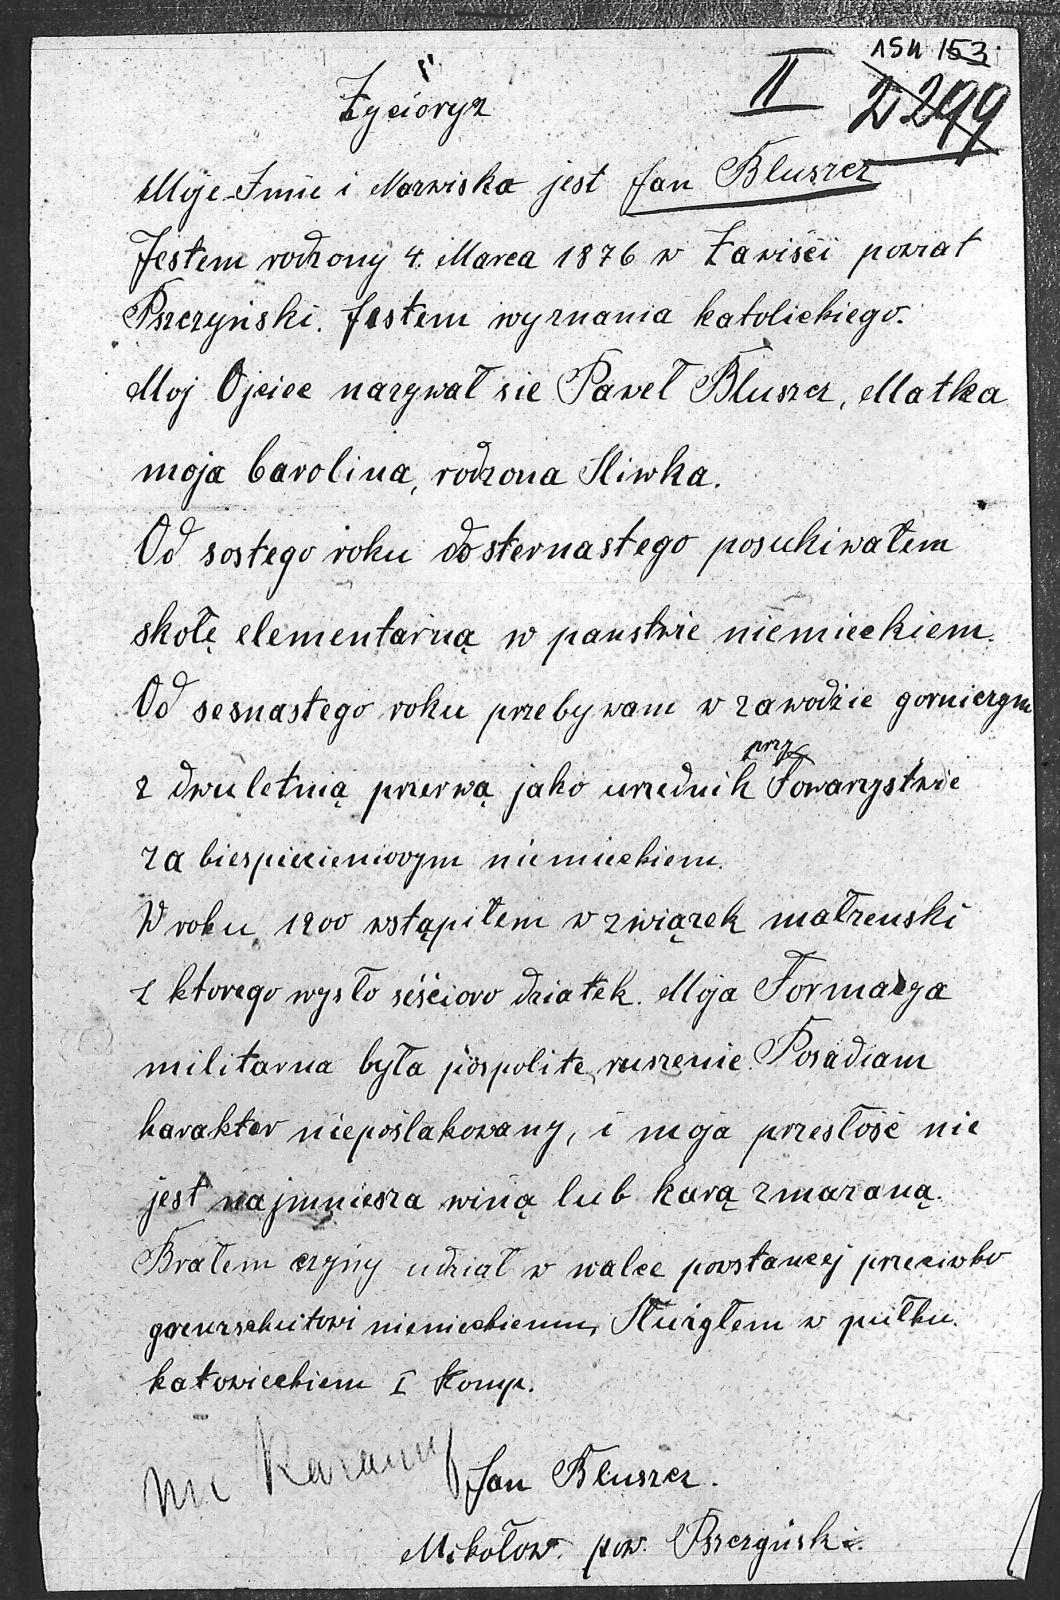 154 153.
II 2299
Życiorys
Moje Imie i Nazwisko jest Jan Bluszcz
Jestem rodzony 4. Marca 1876 w Zawiści powiat
Pszczyński. Jestem wyznania katolickiego.
Moj Ojciec nazywał sie Paweł Bluszcz, Matka
moja Carolina, rodzona Sliwka.
Od sostego roku do sternastego posukiwałem
skołę elementarną w panstwie niemieckiem.
Od sesnastego roku przebywam w zawodzie gorniczym
przy
z dwuletnią przerwą jako urzednik Towarzystwie
za biespiecieniowym niemieckiem.
W roku 1900 wstąpiłem w związek małzenski
z ktorego wysło seścioro dziatek. Moja Formacya
militarna była pospolite ruszenie. Posiadam
karakter nieposlakowany, i moja przesłość nie
jest najmniesza winą lub karą zmazaną.
Brałem czyny udział w walce powstancej przeciwko
grenzschutowi niemieckiemu, Służyłem w pułku
katowickiem I Komp.
nie Karany
Jan Bluszcz.
Mikołow. pow. Pszczyński.